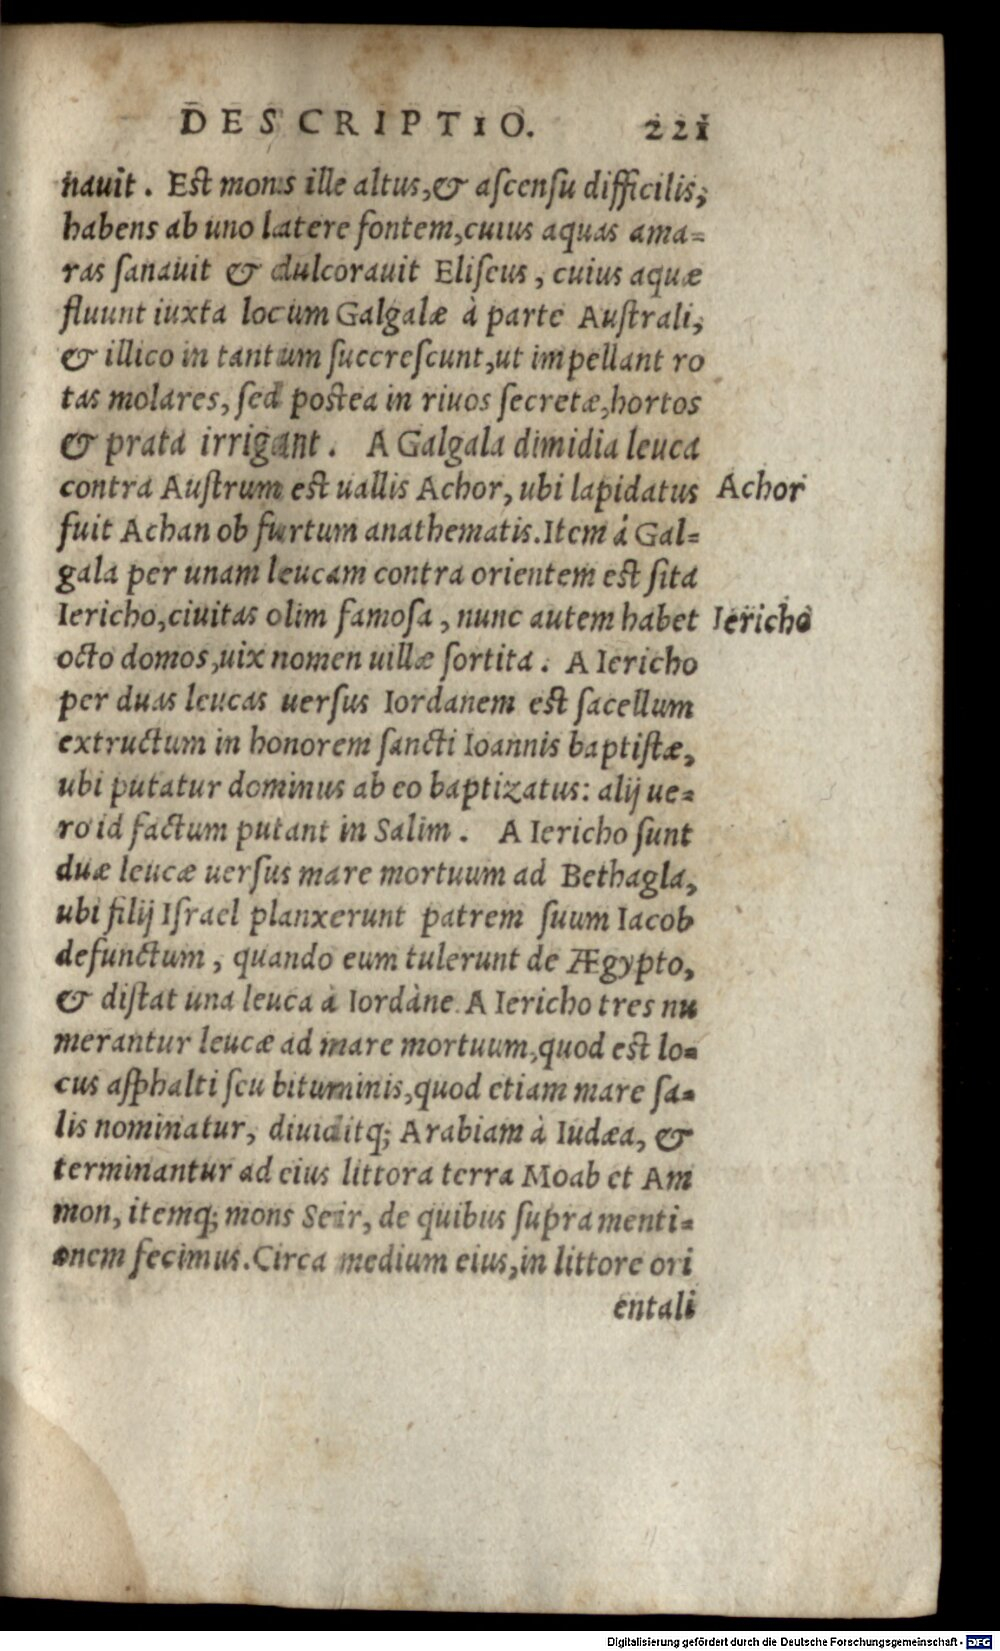 DESCRIPTIO. 221
nauit. Est mons ille altus, & ascensu difficilis,
habens ab uno latere fontem, cuius aquas ama=
ras sanauit & dulcorauit Eliseus, cuius aquæ
fluunt iuxta locum Galgalæ à parte Australi,
& illico in tantum succrescunt, ut impellant ro
tas molares, sed postea in riuos secretæ, hortos
& prata irrigant. A Galgala dimidia leuca
contra Austrum est uallis Achor, ubi lapidatus
Achor
fuit Achan ob furtum anathematis. Item à Gal=
gala per unam leucam contra orientem est sita
Iericho, ciuitas olim famosa, nunc autem habet
Iericho
octo domos, uix nomen uillæ sortita. A Iericho
per duas leucas uersus Iordanem est sacellum
extructum in honorem sancti Ioannis baptistæ,
ubi putatur dominus ab eo baptizatus: alij ue=
ro id factum putant in Salim. A Iericho sunt
duæ leucæ uersus mare mortuum ad Bethagla,
ubi filij Israel planxerunt patrem suum Iacob
defunctum, quando eum tulerunt de Ægypto,
& distat una leuca à Iordàne. A Iericho tres nu
merantur leucæ ad mare mortuum, quod est lo=
cus asphalti seu bituminis, quod etiam mare sa=
lis nominatur, diuiditq; Arabiam à Iudæa, &
terminantur ad eius littora terra Moab et Am
mon, itemq; mons Seir, de quibus supra menti=
onem fecimus. Circa medium eius, in littore ori
entali
Digitalisierung gefördert durch die Deutsche Forschungsgemeinschaft - DFG